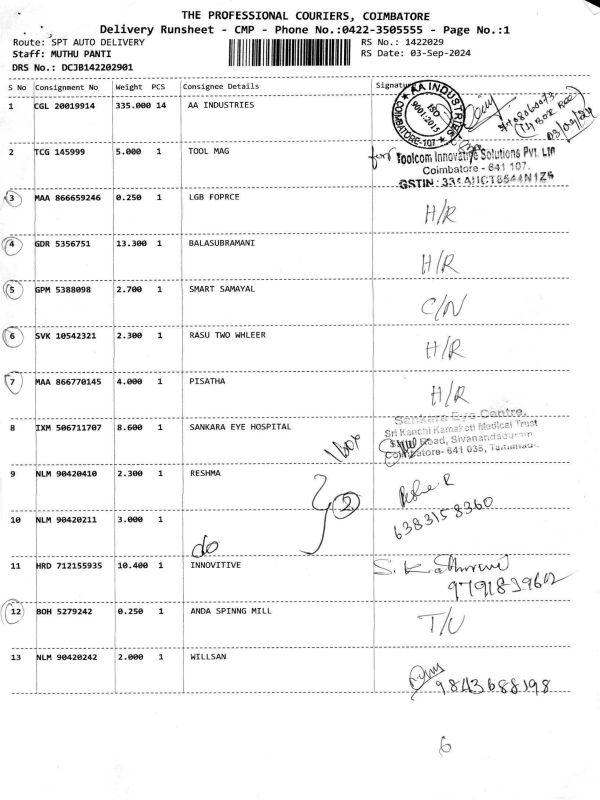 THE PROFESSIONAL COURIERS, COIMBATORE
Delivery Runsheet - CMP - Phone No.:0422-3505555 - Page No.:1
Route: SPT AUTO DELIVERY RS No.: 1422029
Staff: MUTHU PANTI RS Date: 03-Sep-2024
DRS No.: DCJB142202901
S No Consignment No Weight PCS Consignee Details Signature
1 CGL 20019914 335.000 14 AA INDUSTRIES
AA INDUSTRIES
ISO
9001:2015
COIMBATORE-107
03/09/24
2 TCG 145999 5.000 1 TOOL MAG
for Toolcom Innovative Solutions Pvt. Ltd
Coimbatore - 641 107.
3 MAA 866659246 0.250 1 LGB FOPRCE H/R
4 GDR 5356751 13.300 1 BALASUBRAMANI H/R
5 GPM 5388098 2.700 1 SMART SAMAYAL C/N
6 SVK 10542321 2.300 1 RASU TWO WHLEER H/R
7 MAA 866770145 4.000 1 PISATHA H/R
8 IXM 506711707 8.600 1 SANKARA EYE HOSPITAL 1 box
Sankara Eye Centre,
Sri Kanchi Kamakoti Medical Trust
Road, Sivanandapuram
Coimbatore- 641 035, Tamilnadu
9 NLM 90420410 2.300 1 RESHMA 2
6383158360
10 NLM 90420211 3.000 1 do
11 HRD 712155935 10.400 1 INNOVITIVE
9791839602
12 BOH 5279242 0.250 1 ANDA SPINNG MILL T/U
13 NLM 90420242 2.000 1 WILLSAN
9843688198
6